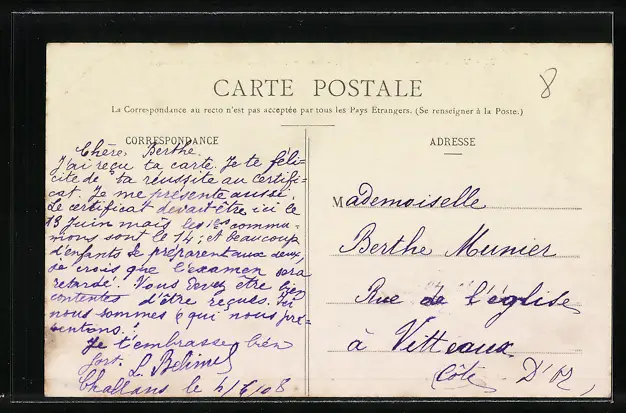 8
CARTE POSTALE
La Correspondance au recto n'est pas acceptée par tous les Pays Etrangers. (Se renseigner à la Poste.)
CORRESPONDANCE
Chère Berthe.
J'ai reçu ta carte. Je te féli=
cite de ta réussite au certifi=
cat. Je me présente aussi.
Le certificat devait être ici le
13 Juin mais les 1res commu=
nions sont le 14; et beaucoup
d'enfants se préparent aux deux,
je crois que l'examen sera
retardé. Vous devez être bien
contentes d'être reçues. Ici
nous sommes 6 qui nous pré=
sentons.!
Je t'embrasse bien
fort. L.
Challans le 08
ADRESSE
Mademoiselle
Berthe Munier
Rue de l'église
à Vitteaux
Côte D'Or